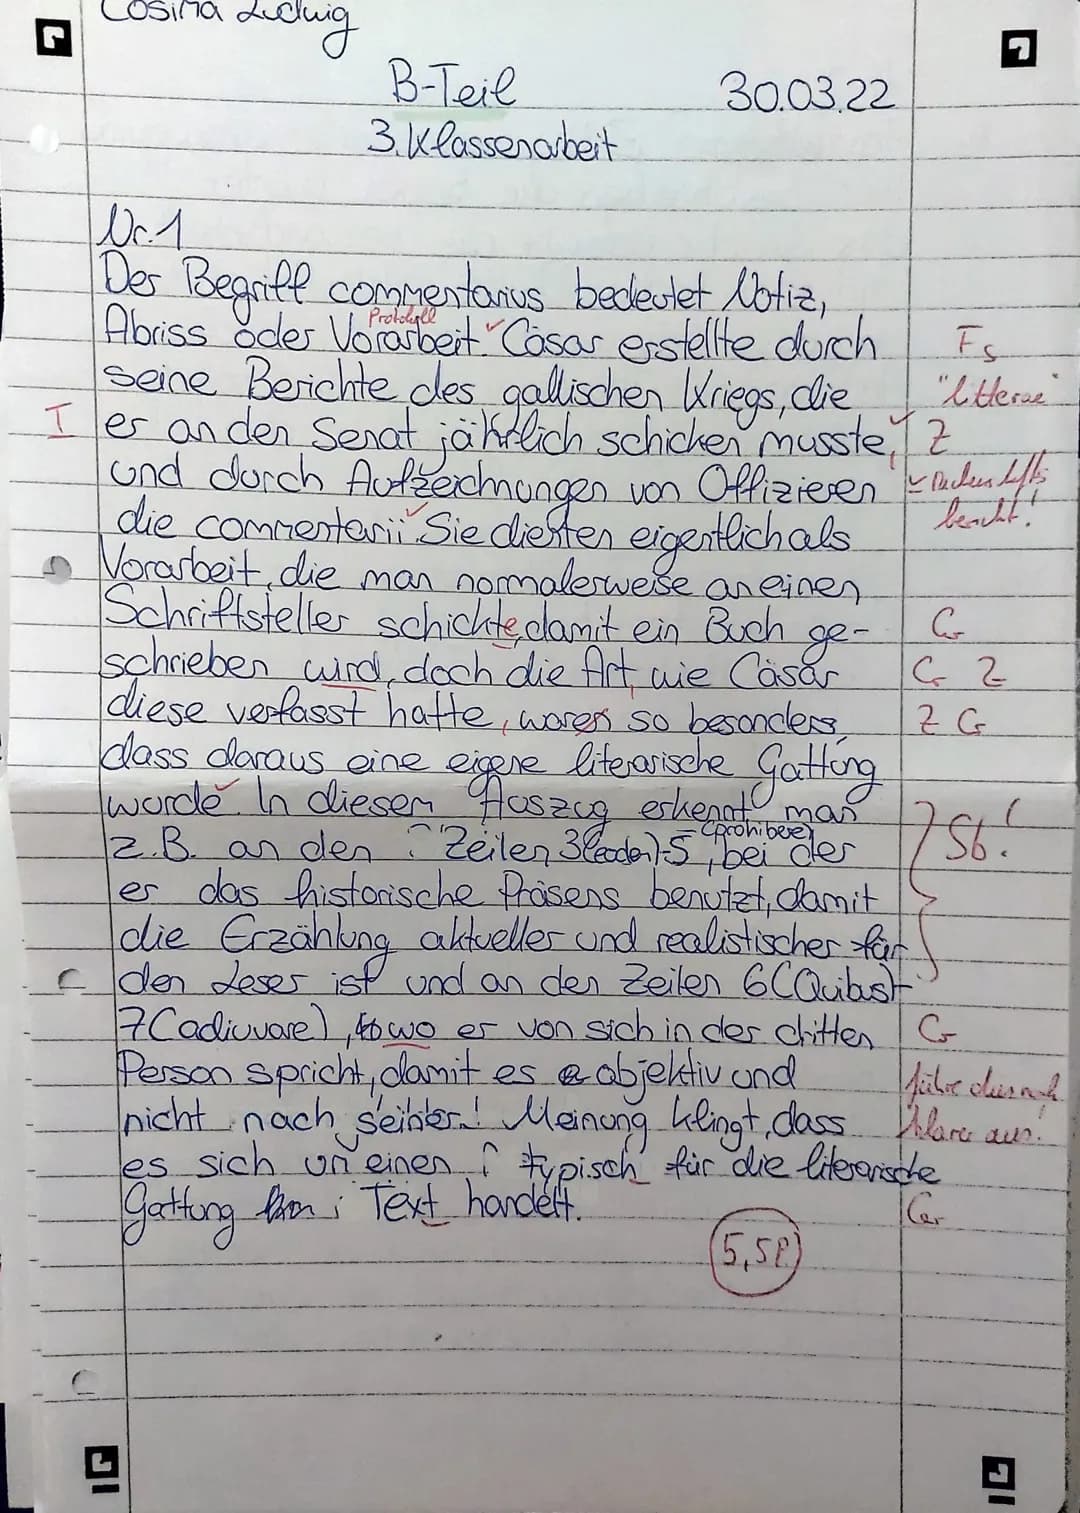 Cosima Ludwig
B-Teil 30.03.22
3. Klassenarbeit
Nr. 1
Der Begriff commentarius bedeutet Notiz,
Protokoll
Abriss oder Vorarbeit. Cäsar erstellte durch Fs
seine Berichte des gallischen Kriegs, die "litterae"
I er an den Senat jährlich schicken musste, Z
und durch Aufzeichnungen von Offizieren
die commentarii. Sie dienten eigentlich als
Vorarbeit, die man normalerweise an einen
Schriftsteller schickte, damit ein Buch ge- Gr
schrieben wird, doch die Art, wie Cäsar Gr Z
diese verfasst hatte, waren so besonders, Z Gr
dass daraus eine eigene literarische Gattung
wurde. In diesem Auszug erkennt man
(prohibere)
z.B. an den Zeilen 3(eadem)-5, bei der Sb!
er das historische Präsens benutzt, damit
die Erzählung aktueller und realistischer für
den Leser ist und an den Zeilen 6(Quibus)-
7(adiuvare), wo er von sich in der dritten Gr
Person spricht, damit es objektiv und
nicht nach seiner! Meinung klingt, dass klarer aus!
es sich um einen typisch für die literarische
Gattung Text handelt. Gr
5,5P.